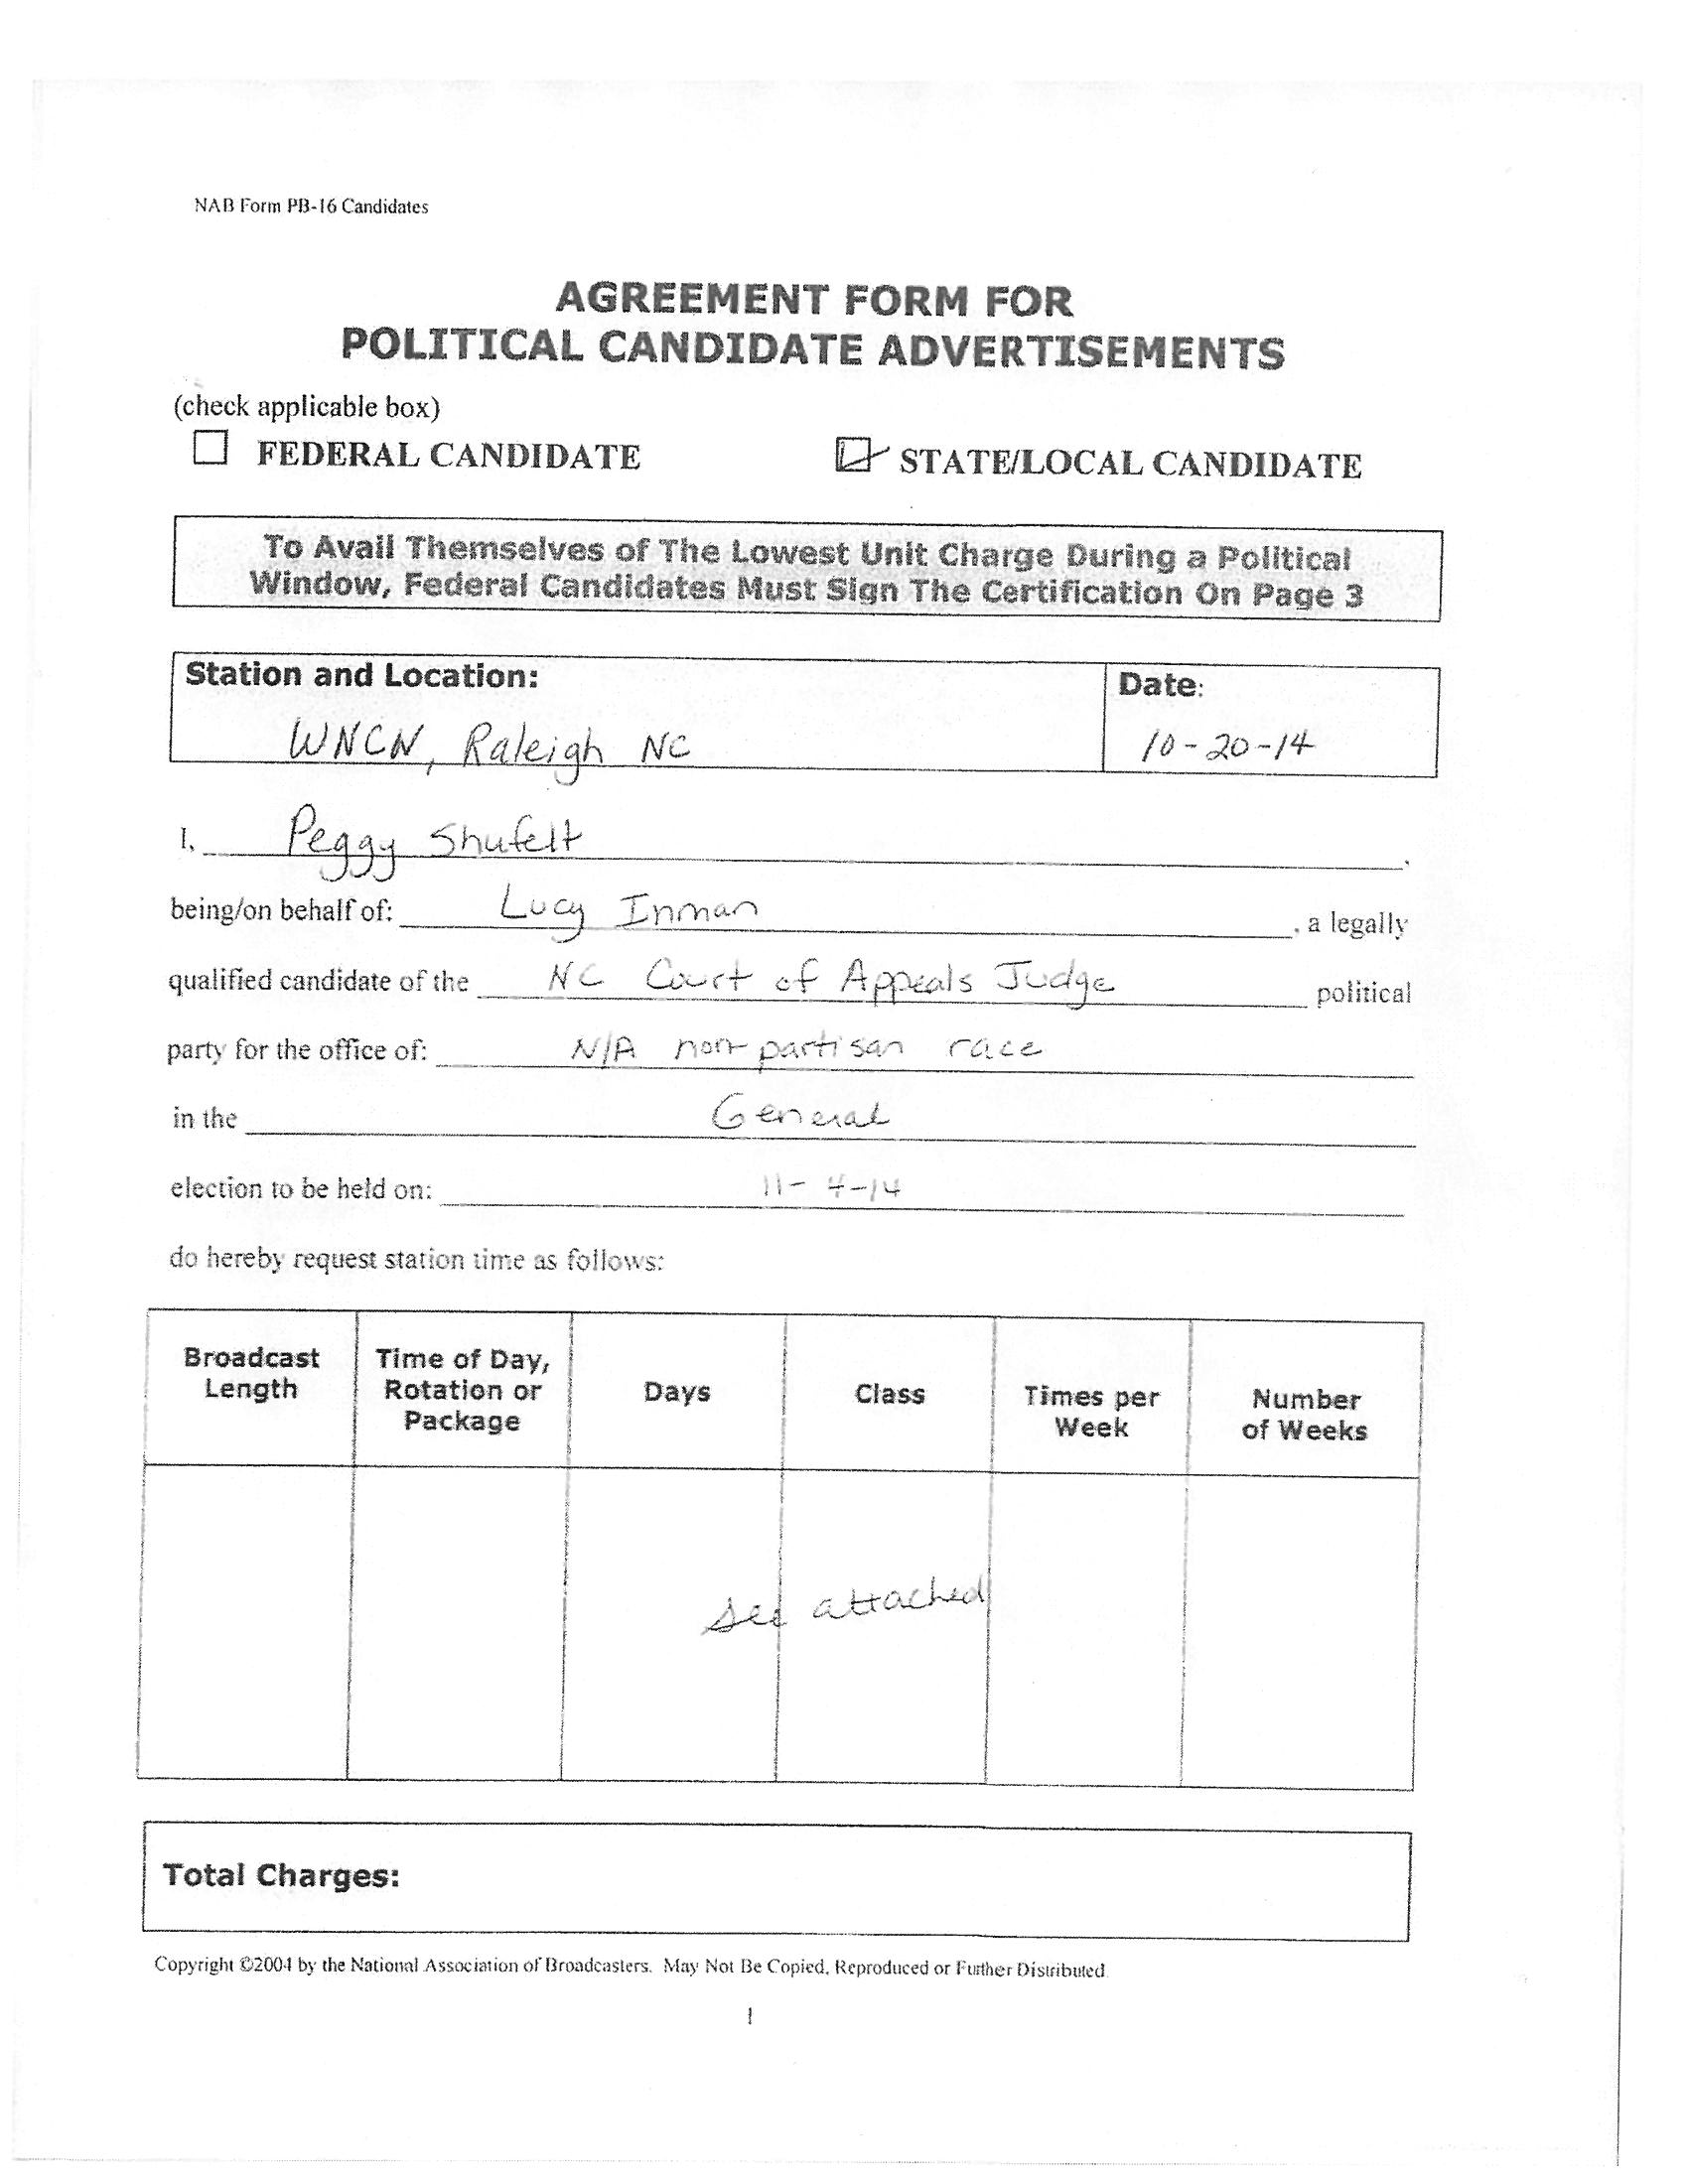 NAB Form PB-16 Candidates
AGREEMENT FORM FOR
POLITICAL CANDIDATE ADVERTISEMENTS
(check applicable box)
FEDERAL CANDIDATE STATE/LOCAL CANDIDATE
To Avail Themselves of The Lowest Unit Charge During a Political
Window, Federal Candidates Must Sign The Certification On Page 3
Station and Location: Date:
WNCN, Raleigh NC 10-20-14
I, Peggy Shufelt,
being/on behalf of: Lucy Inman, a legally
qualified candidate of the NC Court of Appeals Judge political
party for the office of: N/A non-partisan race
in the General
election to be held on: 11-4-14
do hereby request station time as follows:
Broadcast Length Time of Day, Rotation or Package Days Class Times per Week Number of Weeks
see attached
Total Charges:
Copyright ©2004 by the National Association of Broadcasters. May Not Be Copied, Reproduced or Further Distributed
1